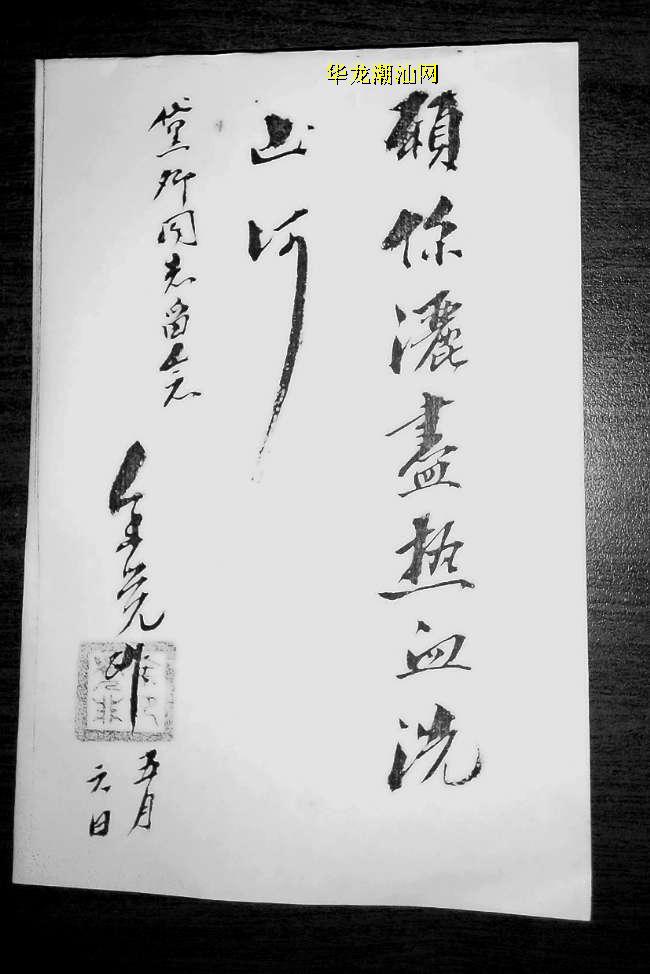 华龙潮汕网
願你灑盡热血洗
山河
黛卿同志留念
余
五月
六日